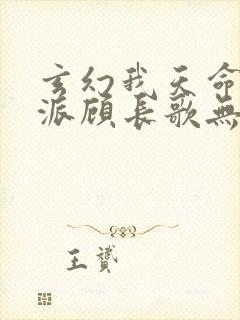 玄幻我天命
派顾长歌無
王赟